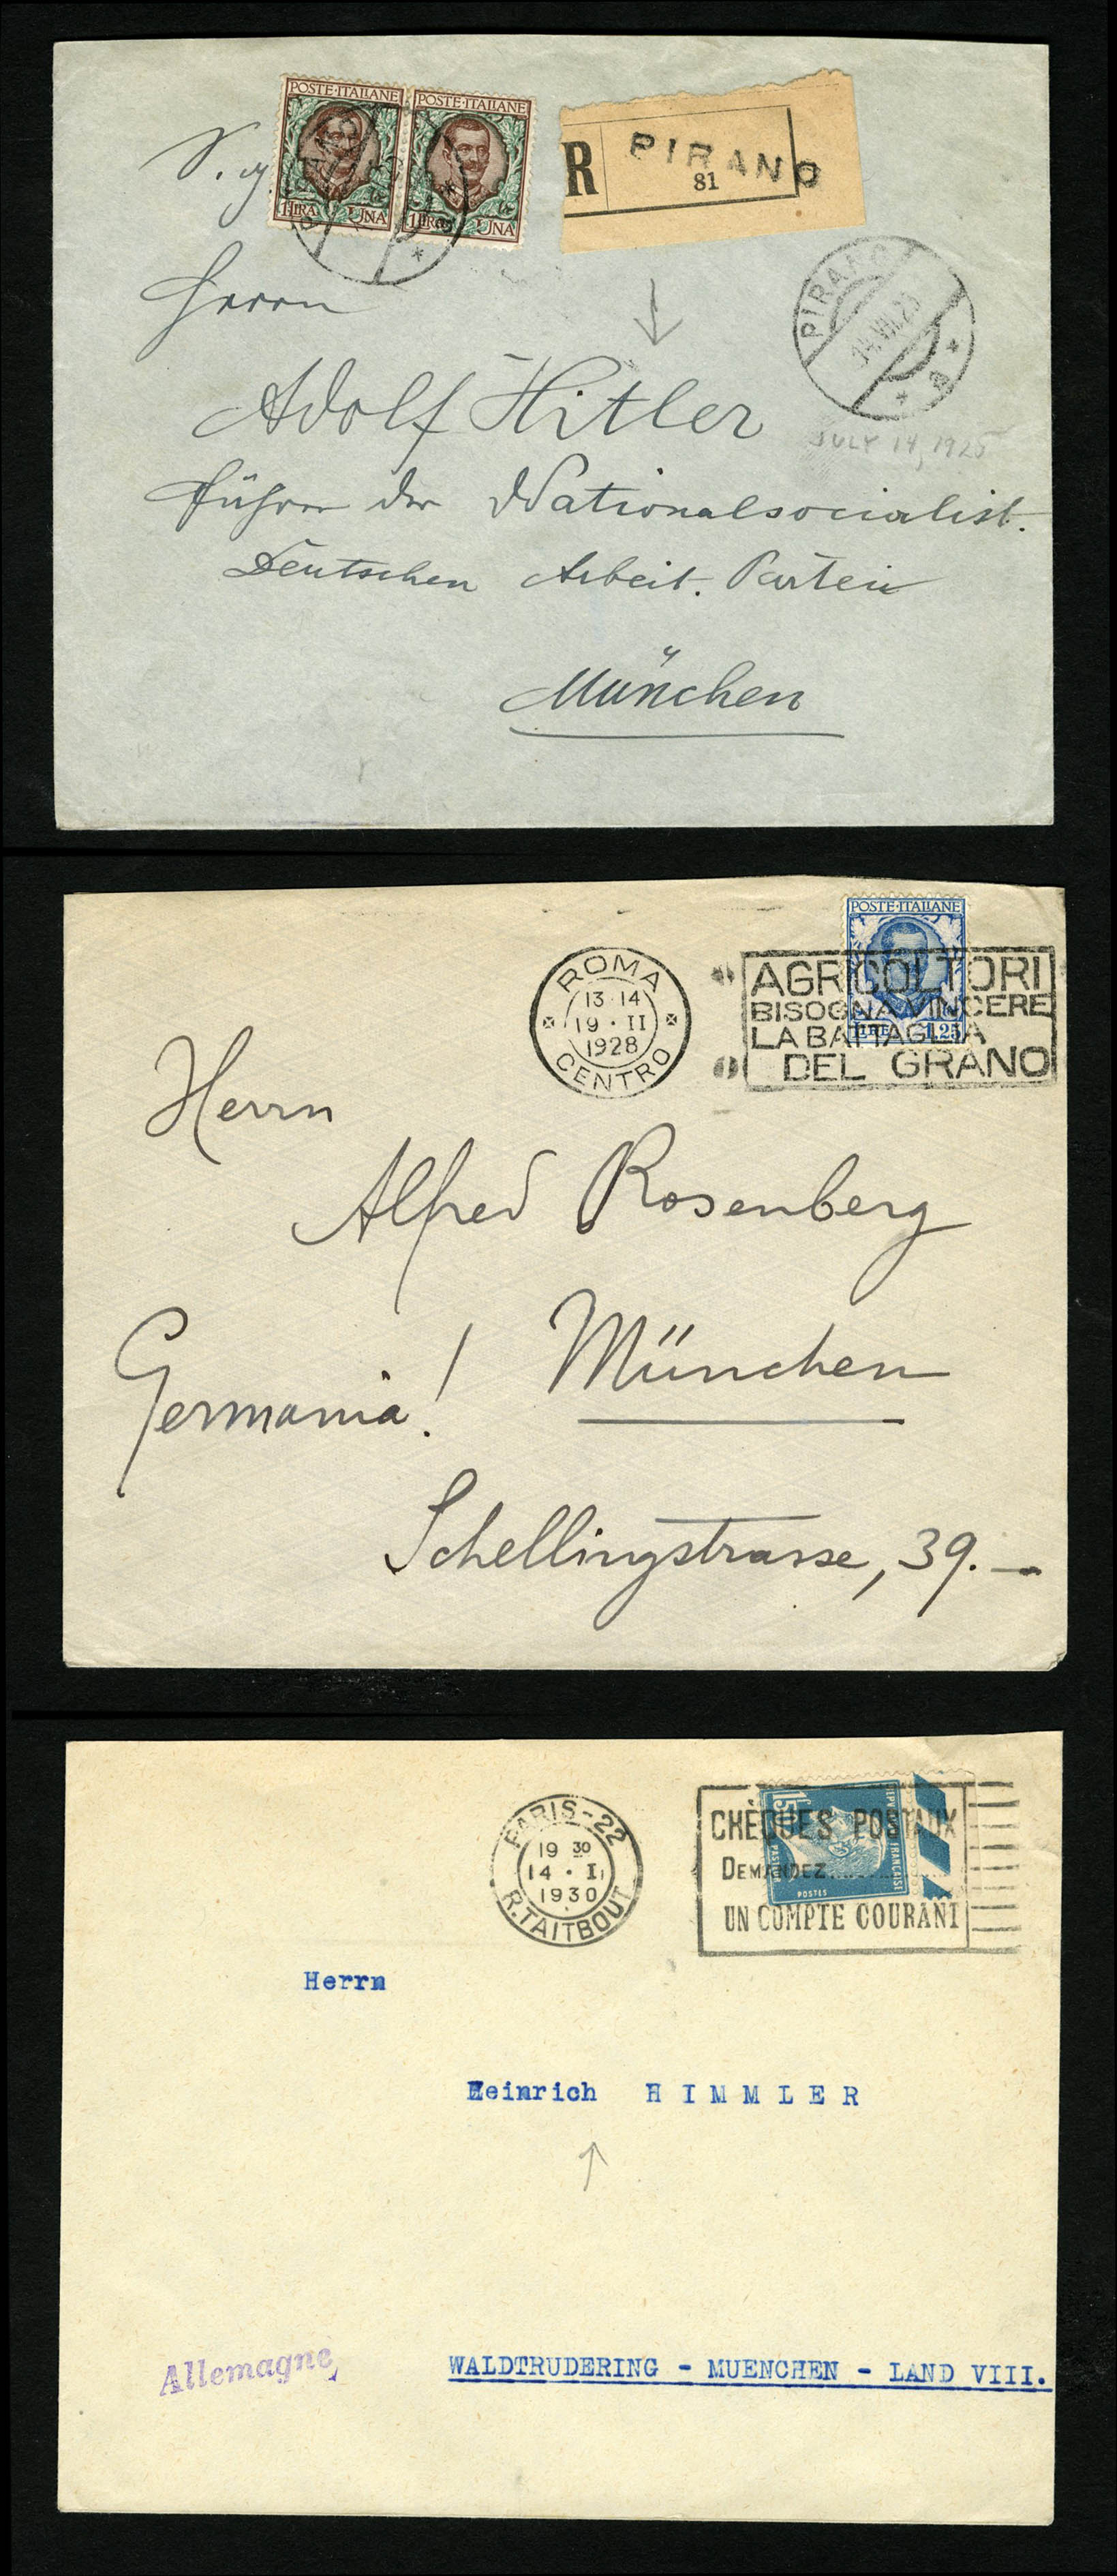 POSTE·ITALIANE POSTE·ITALIANE
1 LIRA UNA 1 LIRA UNA
R PIRANO
81
S. g.
Herrn
PIRANO
14.VII.25
Adolf Hitler
JULY 14, 1925
Führer der Nationalsocialist.
Deutschen Arbeit. Partei
München
POSTE·ITALIANE
LIRE 1,25
ROMA
13·14
19·II
1928
CENTRO
AGRICOLTORI
BISOGNA VINCERE
LA BATTAGLIA
DEL GRANO
Herrn
Alfred Rosenberg
Germania! München
Schellingstrasse, 39.—
PARIS-22
19 30
14·I
1930
R.TAITBOUT
CHÈQUES POSTAUX
DEMANDEZ
UN COMPTE COURANT
POSTES
Herrn
Heinrich HIMMLER
Allemagne
WALDTRUDERING - MUENCHEN - LAND VIII.